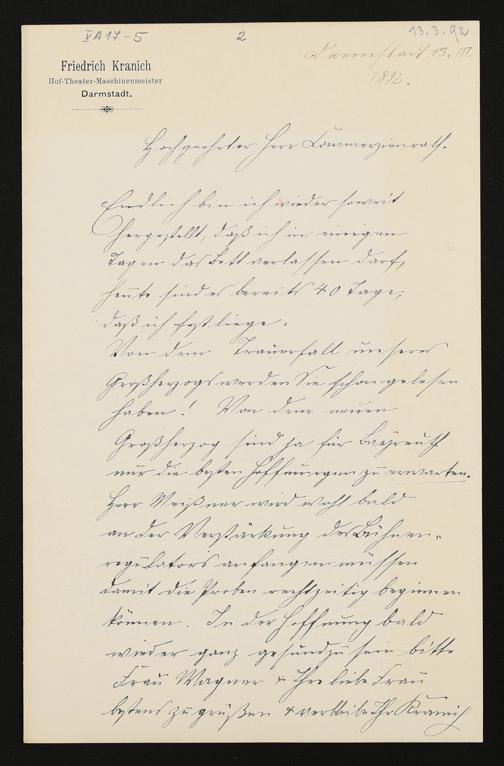 VA17-5
2
13.3.92
Friedrich Kranich
Hof-Theater-Maschinenmeister
Darmstadt.
Darmstadt 13. III
1892.
Hochgeehrter Herr Commerzienrath.
Endlich bin ich wieder soweit
hergestellt, daß ich in einigen
Tagen das Bett verlassen darf,
heute sind es bereits 40 Tage,
daß ich festliege.
Von dem Trauerfall unseres
Großherzogs werden Sie schon gelesen
haben! Von dem neuen
Großherzog sind ja für Bayreuth
nur die besten Hoffnungen zu erwarten.
Herr Weißner wird wohl bald
an der Verstärkung des Bühnen-
regulators anfangen müssen
damit die Proben rechtzeitig beginnen
können. In der Hoffnung bald
wieder ganz gesund zu sein bitte
Frau Wagner & Ihre liebe Frau
bestens zu grüßen & verbleibe Ihr Kranich